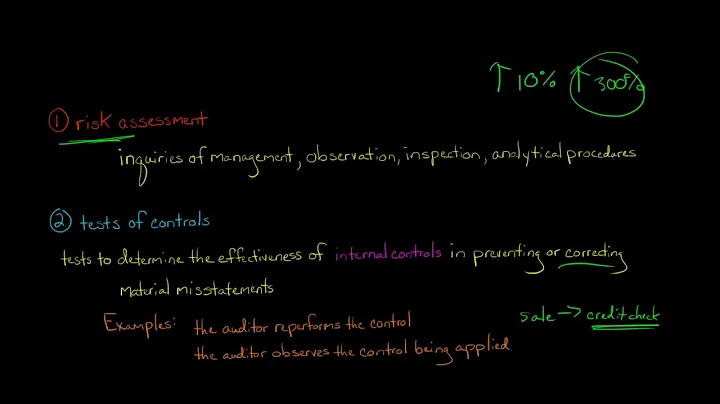 ↑ 10% ↑ 300%
① risk assessment
inquiries of management, observation, inspection, analytical procedures
② tests of controls
tests to determine the effectiveness of internal controls in preventing or correcting
material misstatements
Examples: the auditor reperforms the control
sale → credit check
the auditor observes the control being applied